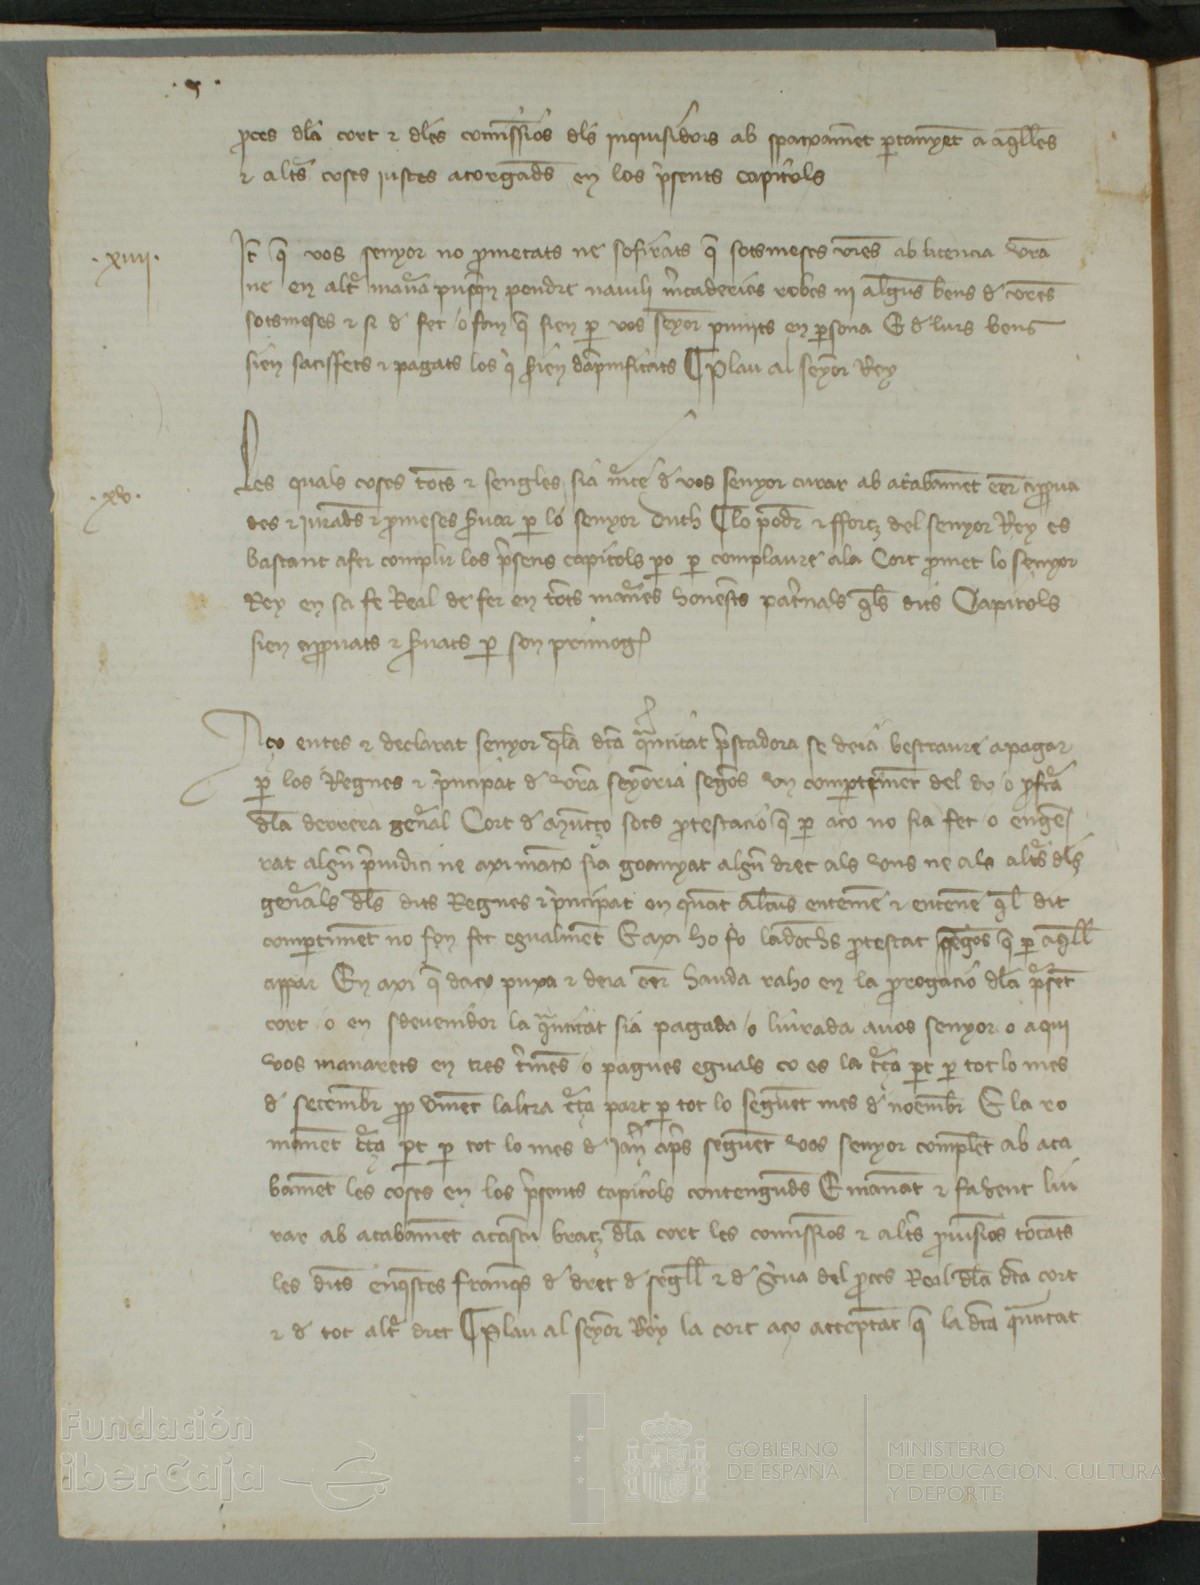 proces dla cort e dles comissios dls inquisidors ab spatxamet ptanyet a aqlles
e altrs coses justes atorgads en los psents capitols
.xiiii.
It q vos senyor no pmetats ne sofirats q sotsmeses vres ab licencia vra
ne en altr mana pusqn pendre navili mcaderies robes ni algus bens d vres
sotsmeses e si d fet o fan q sien p vos senyor punits en psona E d lurs bens
sien satisffets e pagats los q serien dapnificats Plau al senyor Rey
.xv.
Les quals coses totes e sengles sia mce d vos senyor curar ab acabamet eer appua
des e jurads e pmeses svar p lo senyor duch Lo poder e fforç del senyor Rey es
bastant a fer complir los psens capitols po p complaure a la Cort pmet lo senyor
Rey en sa fe Real de fer en totes maneres honestes patnals qls dits Capitols
sien appvats e svats p son primog
Aço entes e declarat senyor qla dta quantitat prestadora se deia bestraure a pagar
p los Regnes e principat d vra senyoria segons un comptimet del
dla derrera general Cort d Muntço sots protestacio q p aço no sia fet o enge
rat algun piudici ne axi matex sia goanyat algun dret als uns ne als altrs dls
generals dls dits Regnes e principat en quant alcuns entenen e entenen ql dit
comptimet no fon fet egualmet E axi ho fo ladochs protestat segons q p aqll
appar En axi q daço puxa e deia eer hauda raho en la progacio dla psent
cort o en sdevenidor la quantitat sia pagada o liurada a vos senyor o a qui
vos manarets en tres tmes o pagues eguals ço es la tça pt p tot lo mes
d setembr pp vinet laltra tça part p tot lo seguet mes d noembr E la ro
manet tça pt p tot lo mes d Jan aps seguet vos senyor complet ab aca
bamet les coses en los psents capitols contengudes E manat e fahent liu
rar ab acabamet a cascu braç dla cort les comissios e altrs pvisios tocats
les dits enqstes franqs d dret d segll e d scriva del proces Real dla dta cort
e d tot altr dret Plau al senyor Rey la cort aço acceptat q la dta quantitat
Fundación
iberCaja
GOBIERNO
DE ESPAÑA
MINISTERIO
DE EDUCACIÓN, CULTURA
Y DEPORTE